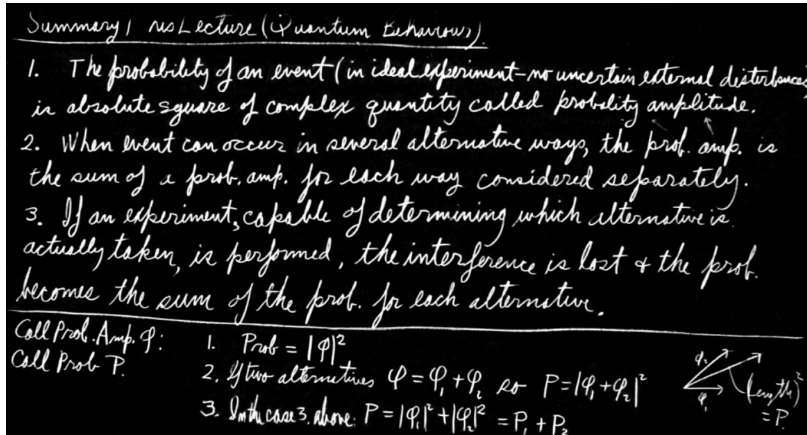 Summary, this Lecture (Quantum Behaviour).
1. The probability of an event (in ideal experiment - no uncertain external disturbances
is absolute square of complex quantity called probality amplitude.
2. When event can occur in several alternative ways, the prob. amp. is
the sum of a prob. amp. for each way considered separately.
3. If an experiment, capable of determining which alternative is
actually taken, is performed, the interference is lost & the prob.
becomes the sum of the prob. for each alternative.
Call Prob. Amp. φ:
Call Prob P.
1. Prob = |φ|²
2. If two alternatives φ = φ₁ + φ₂ so P = |φ₁ + φ₂|²
3. In the case 3. above. P = |φ₁|² + |φ₂|² = P₁ + P₂
φ₂
φ₁
(length)²
= P.